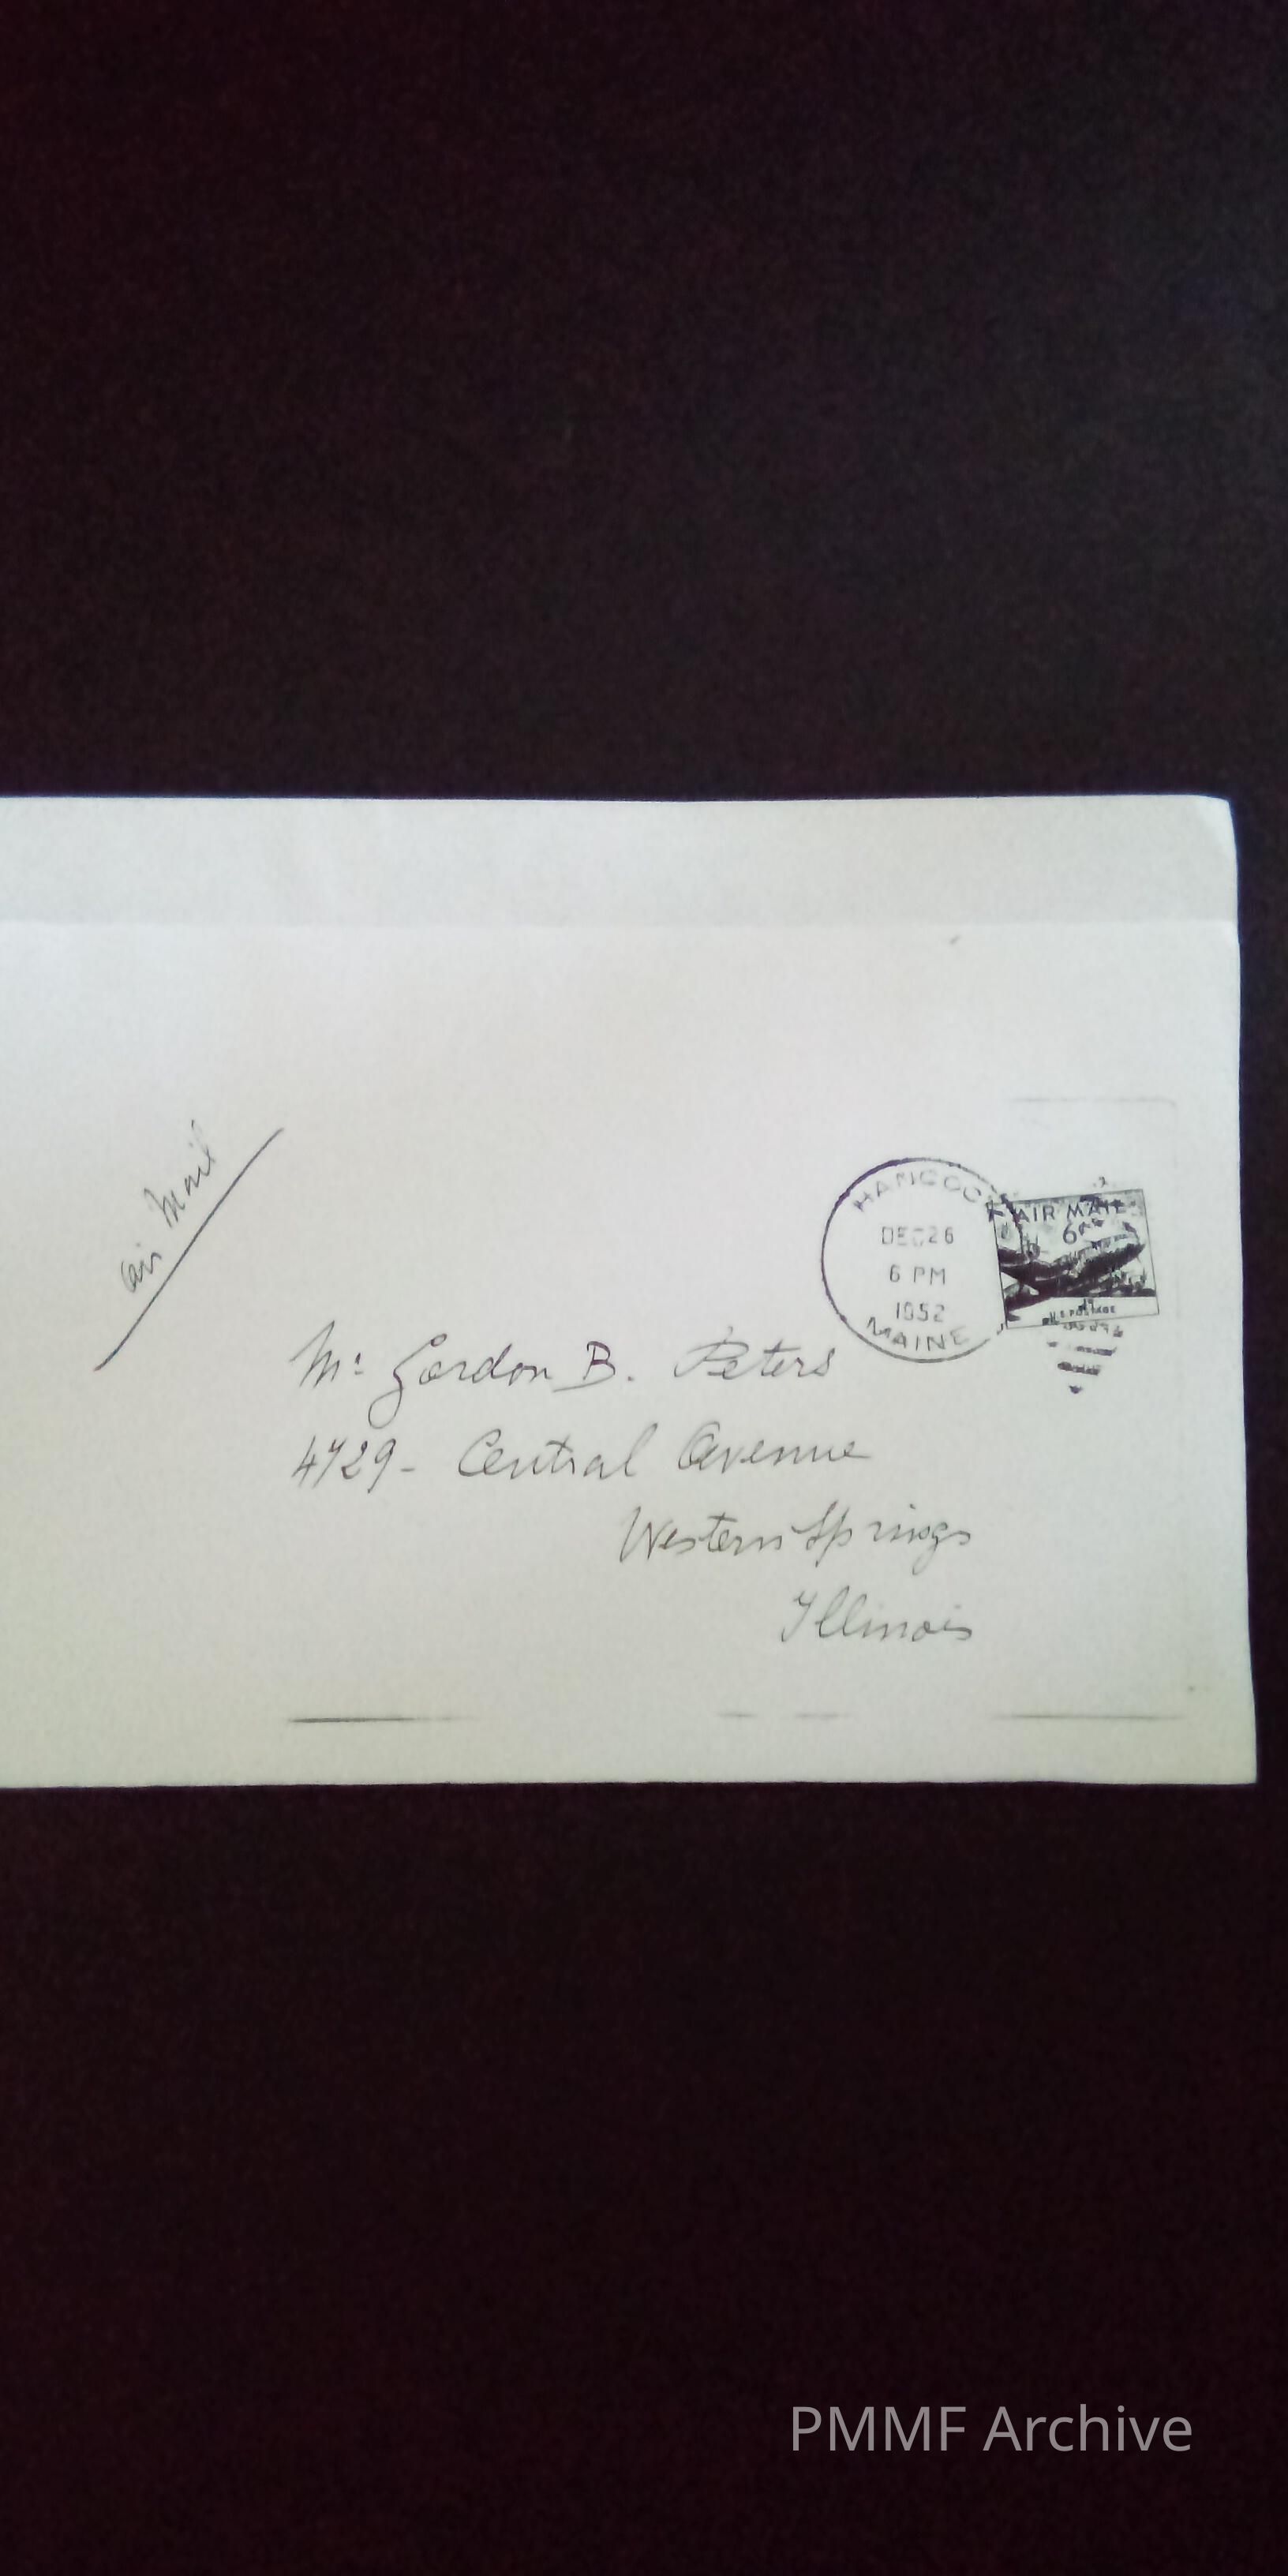 HANCOCK
DEC 26
6 PM
1952
MAINE
AIR MAIL
6¢
U.S. POSTAGE
air Mail
Mr Gordon B. Peters
4729 - Central Avenue
Western Springs
Illinois
PMMF Archive